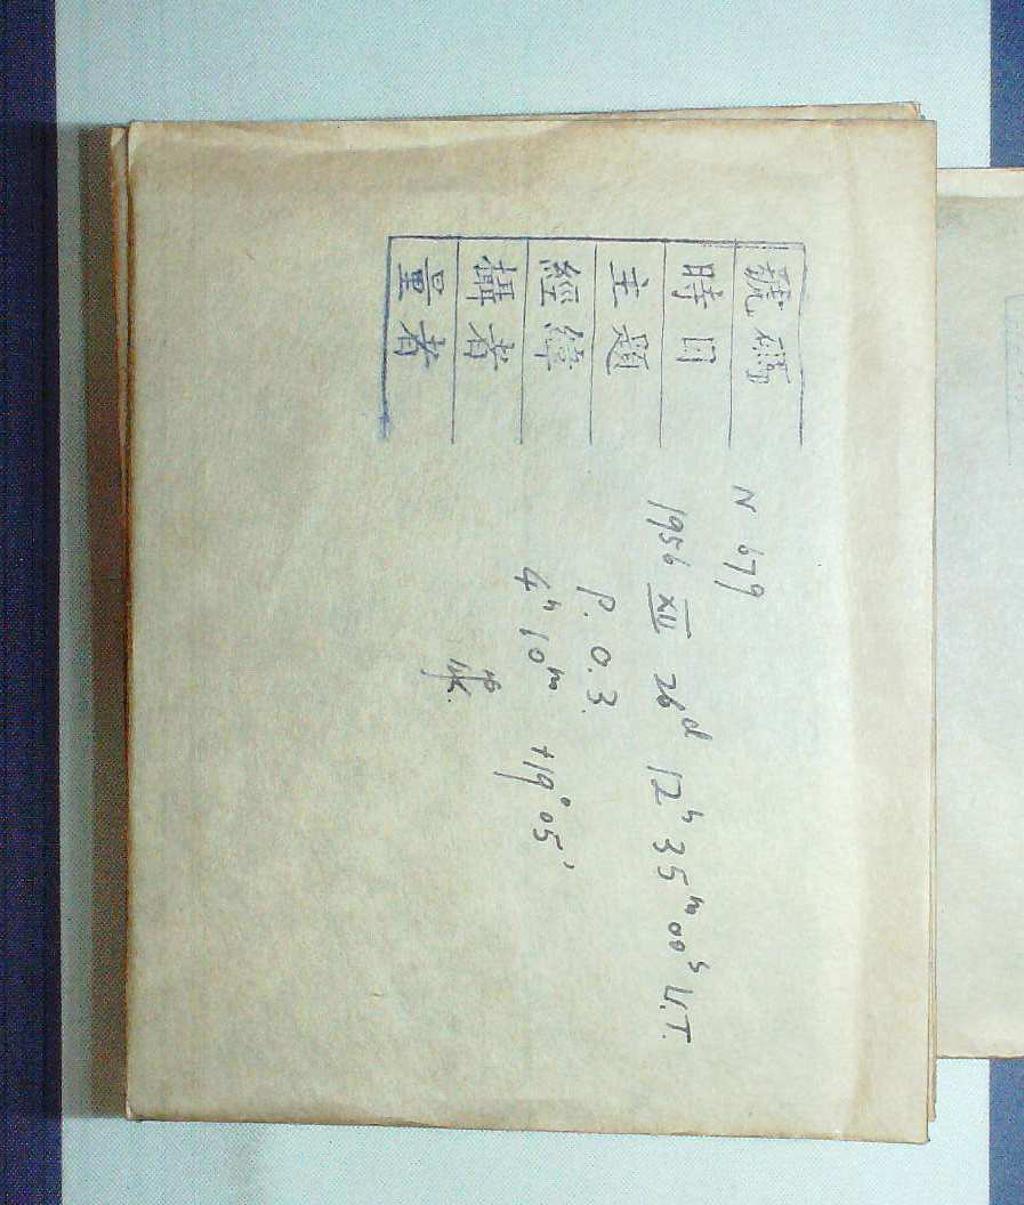 號碼 N 679
時日 1956 XII 26ᵈ 12ʰ 35ᵐ 00ˢ U.T.
主題 P. O. 3.
經緯 4ʰ 10ᵐ +19° 05'
攝者
量者